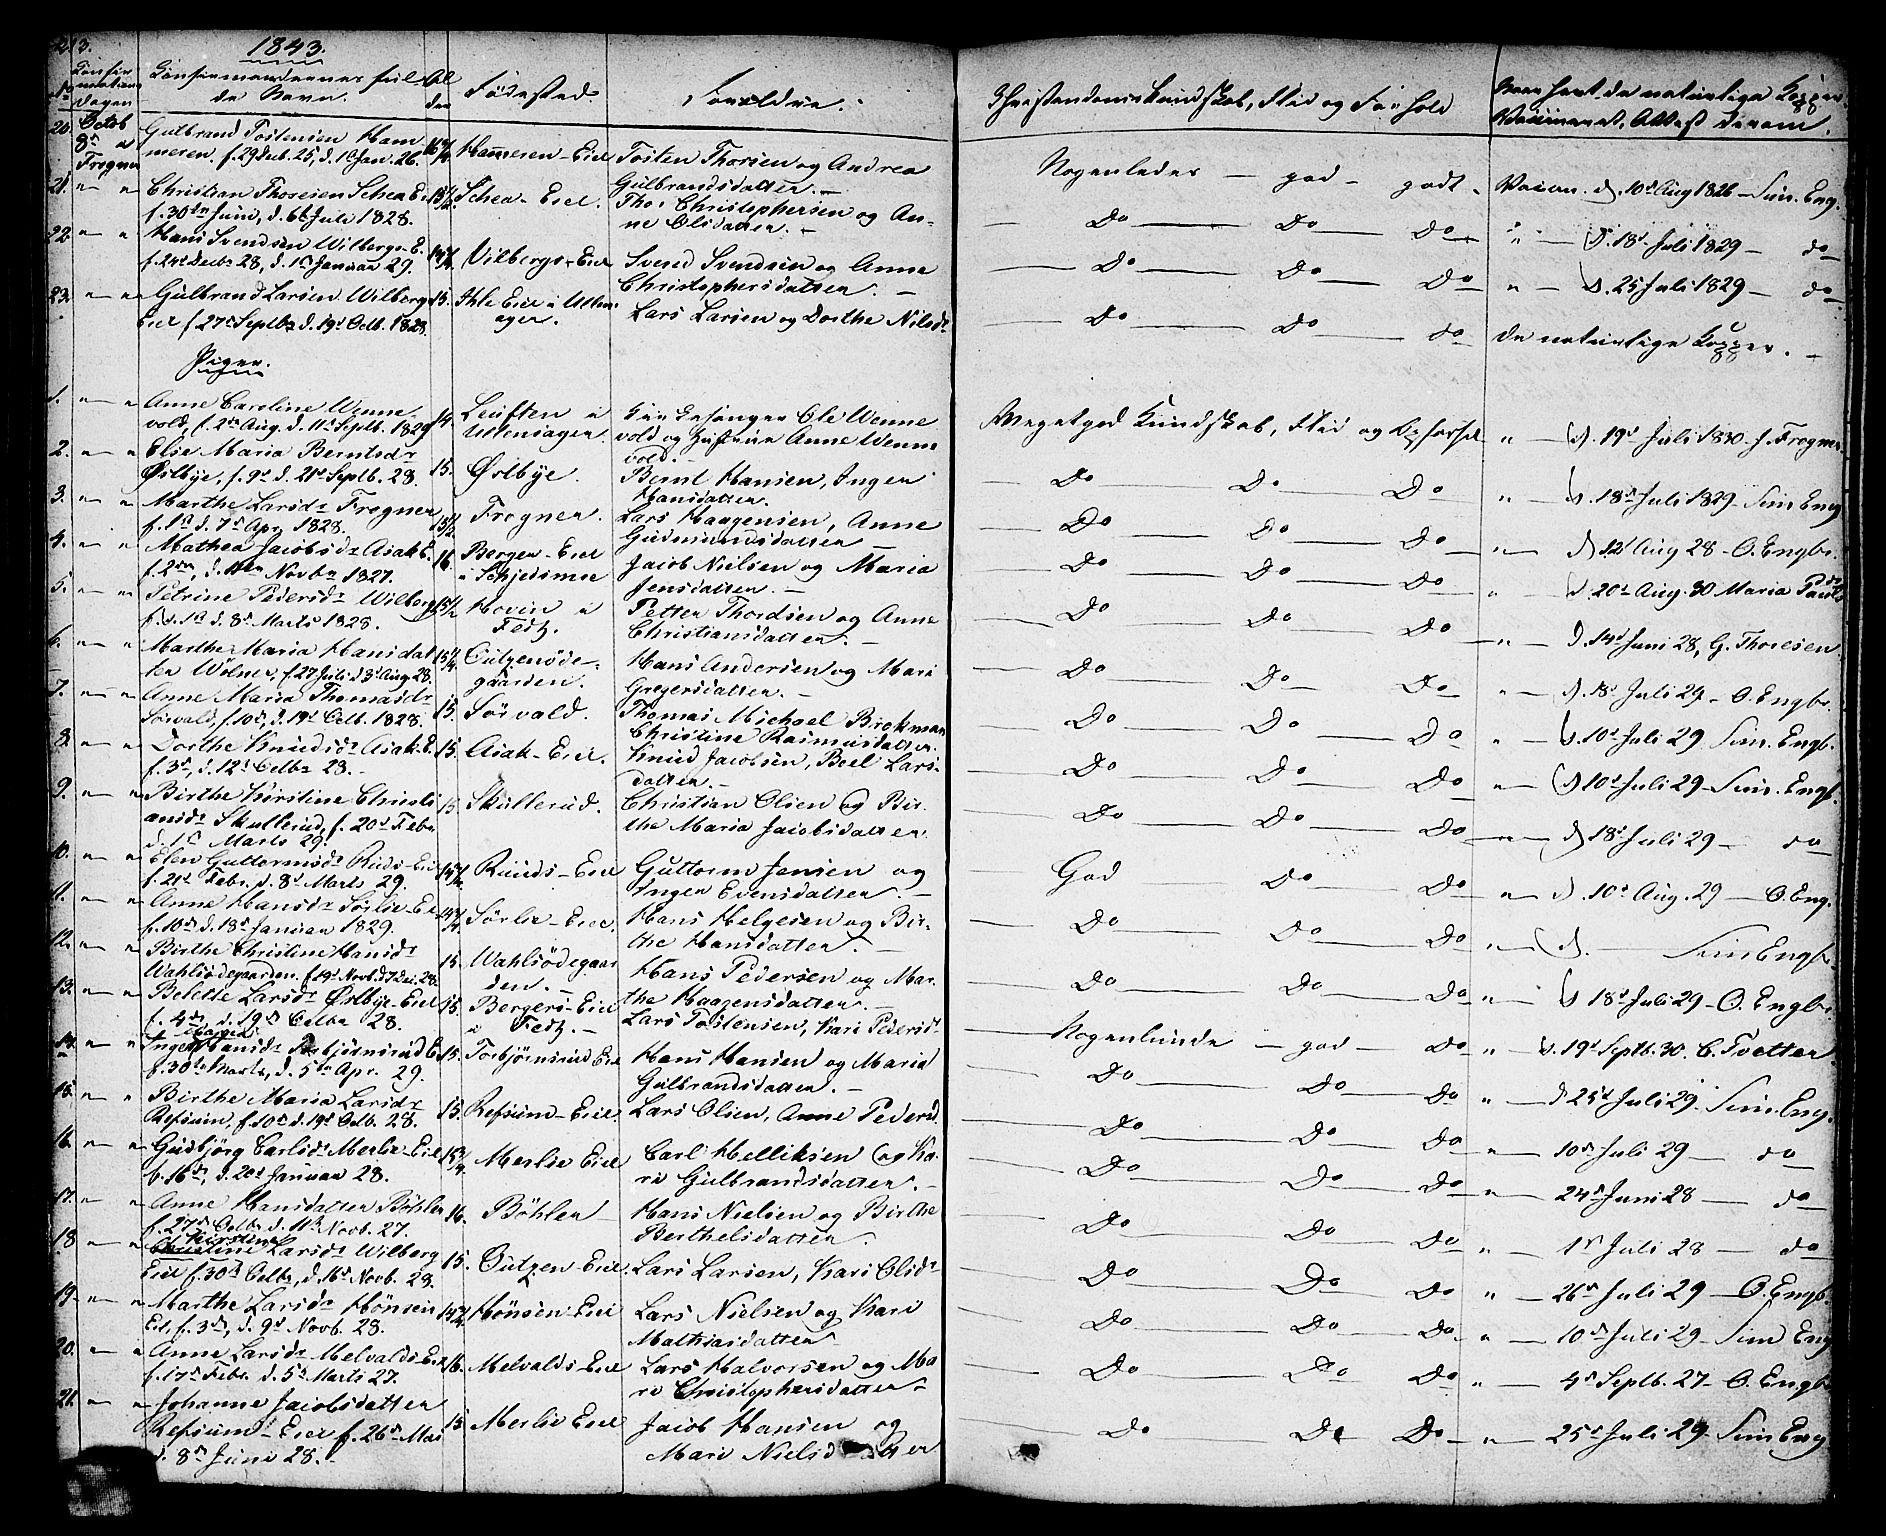 213.
1843.
No
Confirmations
Dagen
Confirmandernes ful-
de Navn.
Al
der
Fødested.
Forældre.
Christendoms Kundskab, Flid og Forhold
20. Octob 8de Frogner Gulbrand Tostensen Ham
meren, f. 29 Dcb. 25, d. 1 Jan. 26. Hammeren-Eier Tosten Thorsen og Andrea
Gulbrandsdatter. Nogenledes — god — godt. Vaccin. d. 10d Aug 1826 — Sim. Eng.
21. Christian Thoresen Schea E.
f. 30te Juni, d. 6te Juli 1828. 15 1/2 Schea-Eier. Thor Christophersen og An-
ne Olsdatter. Do Do Do d. 18d Juli 1829 — do
22. Hans Svendsen Wilbergs-E.
f. 24d Decbr 28, d. 1ste Januar 29. Vilbergs-Eier Svend Svendsen og Anne
Christophersdatter. Do Do Do d. 25 Juli 1829 — do
23. Gulbrand Larsen Wilbergs
Eier f. 27d Septbr d. 19d Octb. 1828 15. Ihle Eier i Ullens
ager. Lars Larsen og Dorthe Nilsdr Do Do do de naturlige Kopper.
Piger.
1. Anne Caroline Wenne-
vold, f. 2den Aug. d. 11te Septb. 1829 14. Leuften i
Ullensager. Kirkesanger Ole Wenne
vold og Hustrue Anne Wenne
vold. Meget god Kundskab, Flid og Opførsel d. 19d Juli 1830. J. Frogner.
2. Elise Maria Berntsdr
Østbye, f. 9d d. 21d Septb. 28. 15. Østbye. Bernt Hansen, Inger
Hansdatter. Do Do Do d. 18d Juli 1829 Sim Eng
3. Marthe Larsdr Frogner
f. 1ste d. 7de Apr. 1828. 15 1/2 Frogner. Lars Haagensen, Anne
Gudmundsdatter Do Do Do d. 12d Aug 28 — O. Engbr.
4. Mathea Jacobsdr Asak E.
f. 2den, d. 11te Novbr 1827. 16. Bergen-Eier
i Schjedsmoe Jacob Nielsen og Maria
Jensdatter. Do Do Do d. 20d Aug. 30 Maria
5. Petrine Pedersdr Wilberg
f. d. 1ste d. 8de Marts 1828. 15 1/2 Hovin i
Fedt. Petter Thordsen og Anne
Christiansdatter. Do Do d. 14d Juni 28, G. Thoresen.
6. Marthe Maria Hansdat
ter Wølner, f. 27 Juli d. 3d Aug 28. 15 1/4 Outgenøde-
gaarden. Hans Andersen og Mari
Gregersdatter. Do Do Do d. 18d Juli 29 — O. Engbr.
7. Anne Maria Thomasdr
Sørvald, f. 10de, d. 19d Octb. 1828. 15. Sørvald. Thomas Michael Brokman
Christine Rasmusdatter. Do Do Do d. 10d Juli 29 Sim. Engb.
8. Dorthe Knudsdr Asak-E.
f. 3de, d. 12d Octbr 28. 15. Asak-Eier. Knud Jacobsen, Beel Lars-
datter. Do Do Do d. 10d Juli 29 Sim. Engb.
9. Birthe Kirstine Christi
ansdr Skullerud, f. 20d Febr
d. 1ste Marts 29. 15 Skullerud. Christian Olsen og Bir-
the Maria Jacobsdatter. Do Do Do d. 18d Juli 29 — do
10. Elen Guttormsdr Ruds-Eier
f. 21d Febr. d. 8d Marts 29. Ruuds-Eier Guttorm Jensen og
Inger Evensdatter God do Do d. 10d Aug. 29 — O. Eng.
11. Anne Hansdr Sørlie-Eier
f. 10de d. 18d Januar 1829. Sørlie-Eier. Hans Helgesen og Bir-
the Hansdatter Do Do Do d. — Sim Engb.
12. Birthe Christine Hansdr
Wahlsødegaarden. f. 19d Novb. d. 7 Dec. 28. 15. Wahlsødegaar
den. Hans Pedersen og Mar-
the Haagensdatter. Do Do Do d. 18d Juli 29 — O. Engbr.
13. Belette Larsdr Østbye-Eier
f. 4de, d. 19de Octbr 28. 15. Bergers-Eier
i Fedt. Lars Tostensen, Kari Pedersdr Nogenlunde — god — do d. 19d Septb. 30. C. Tvetter.
14. Inger Hansdr Torbjørnsrud E.
f. 30te Marts, d. 5te Apr. 29. 15. Torbjørnsrud Eier Hans Hansen og Maria
Gulbrandsdatter. Do Do Do d. 25d Juli 29. Sim. Eng.
15. Birthe Maria Larsdr
Refsum, f. 10de d. 19d Octb. 28. 15. Refsum-Eier Lars Olsen, Anne Pedersd Do Do Do 10de Juli 29 — do
16. Gudbjørg Carlsdr Merlie-Eier
f. 16de, d. 20d Januar 28. 15 3/4 Merlie Eier Carl Helliksen og Ka-
ri Gulbrandsdatter. Do Do Do 24de Juni 28 — do
17. Anne Hansdatter Bøhler
f. 27de Octbr d. 11te Novb. 27. 16. Bøhler Hans Nielsen og Birthe
Berthelsdatter. Do Do 1ste Juli 28 — do
18 Kirstine Larsdr Wilberg
Eier f. 30te Octbr, d. 16de Novb. 28. 15. Outgen-Eier. Lars Larsen, Kari Olsdr Do Do Do 26de Juli 29 — O. Engb.
19. Marthe Larsdr Hønsen
Eier, f. 3de, d. 9d Novb. 28. Hønsen-Eier Lars Nielsen og Kari
Mathiasdatter Do Do Do 10de Juli 29 — Sim Eng
20. Anne Larsdr Melvalds-Eier
f. 17de Febr. d. 5te Marts 27. 16. Melvalds-Eier Lars Halvorsen og Ma
ri Christophersdatter Do Do Do 4de Septb. 27 — O. Engb
21. Johanne Jacobsdatter
Refsum-Eier f. 26de Mai
d. 8de Juni 28. 15 Merlie Eier Jacob Hansen og
Mari Nielsdatter Do Do Do 25d Juli 29 Sim Eng